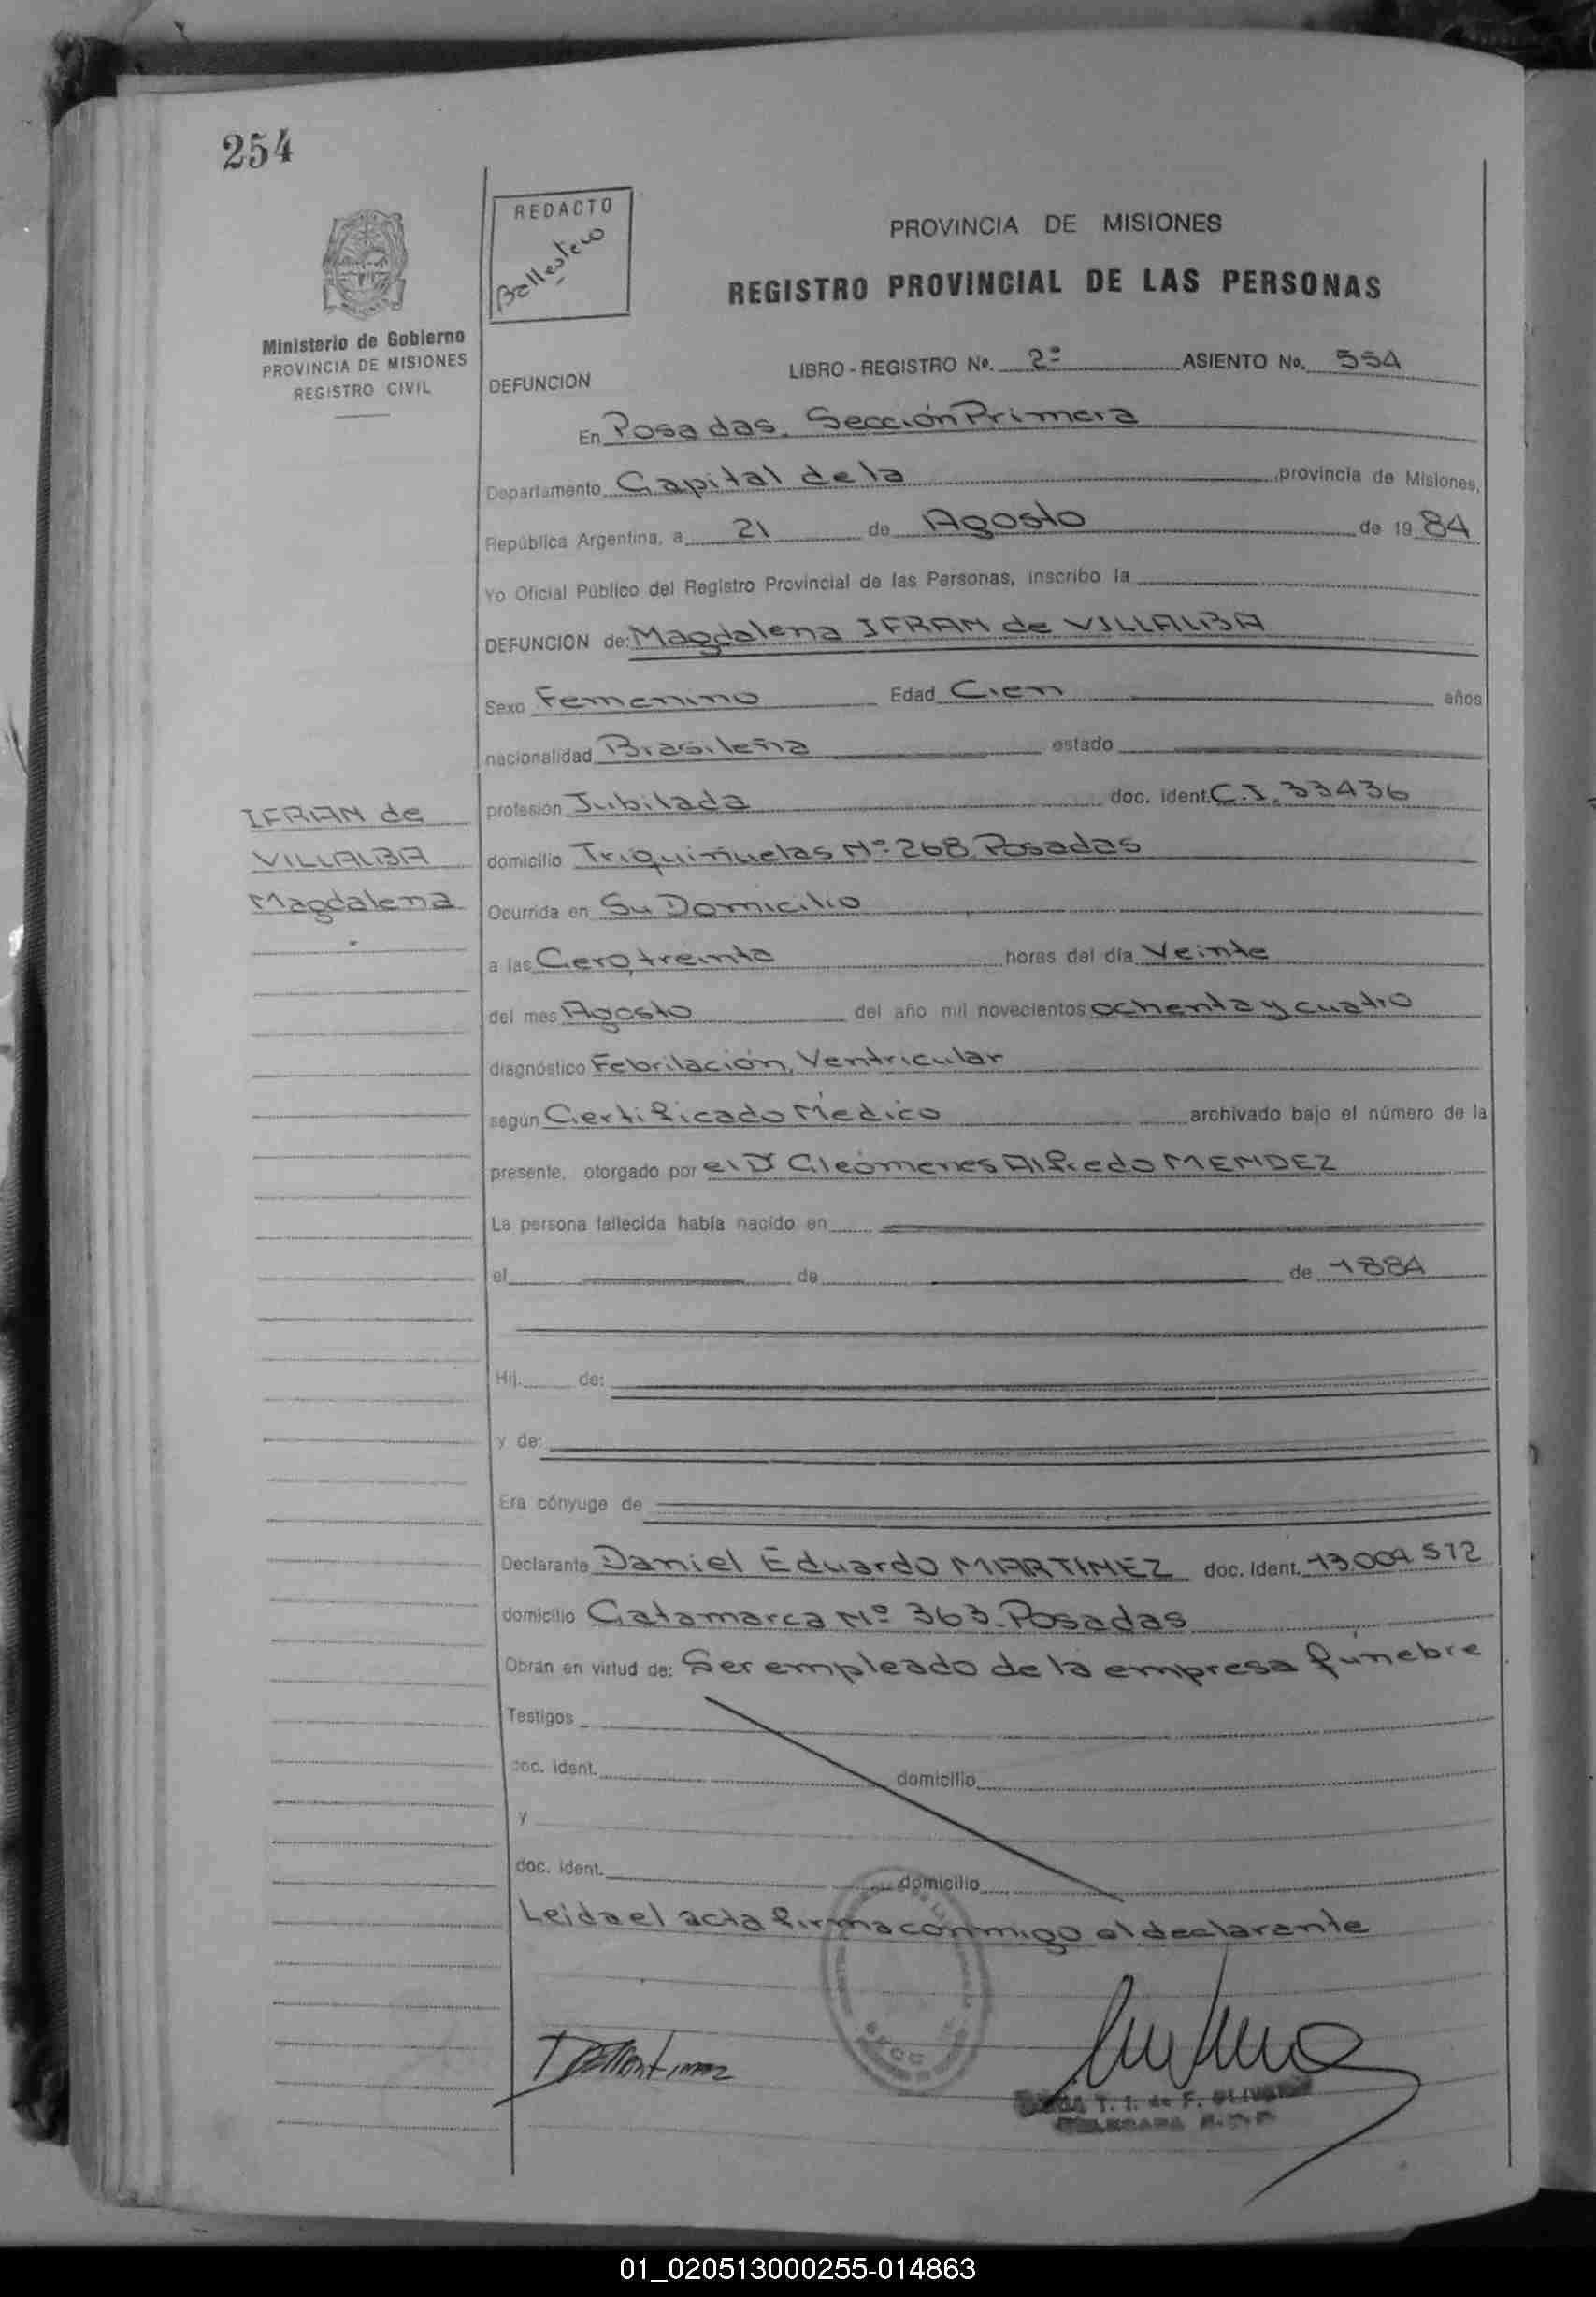 254
REDACTO
Ballestero
Ministerio de Gobierno
PROVINCIA DE MISIONES
REGISTRO CIVIL
PROVINCIA DE MISIONES
REGISTRO PROVINCIAL DE LAS PERSONAS
DEFUNCION LIBRO - REGISTRO Nº. 2º ASIENTO No. 554
En Posadas. Sección Primera
Departamento Capital de la provincia de Misiones,
República Argentina, a 21 de Agosto de 1984
Yo Oficial Público del Registro Provincial de las Personas, inscribo la
DEFUNCION de: Magdalena IFRAN de VILLALBA
Sexo Femenino Edad Cien años
nacionalidad Brasileña estado
IFRAN de
VILLALBA
Magdalena
profesión Jubilada doc. ident. C.I. 33436
domicilio Triquiñuelas Nº 268 Posadas
Ocurrida en Su Domicilio
a las Cero, treinta horas del día Veinte
del mes Agosto del año mil novecientos ochenta y cuatro
diagnóstico Febrilación, Ventricular
según Certificado Médico archivado bajo el número de la
presente, otorgado por el Dr Cleómenes Alfredo MENDEZ
La persona fallecida había nacido en
el de de 1884
Hij. de:
y de:
Era cónyuge de
Declarante Daniel Eduardo MARTINEZ doc. ident. 13.004.572
domicilio Catamarca Nº 363. Posadas
Obran en virtud de: Ser empleado de la empresa fúnebre
Testigos
doc. ident. domicilio
y
doc. ident. domicilio
Leida el acta firma conmigo el declarante
DEMartinez
T. I. de F. OLIVERA
01_020513000255-014863